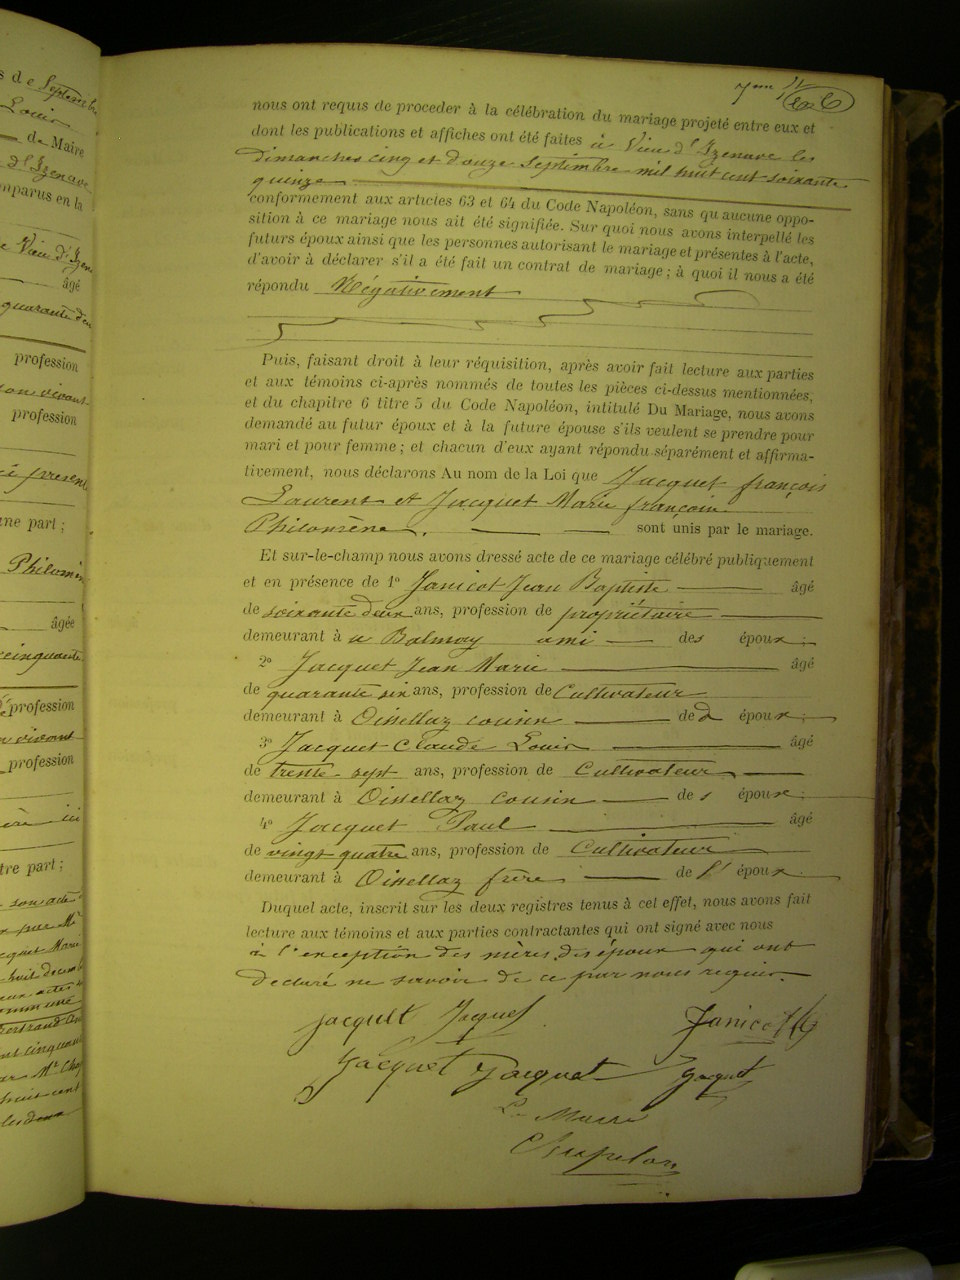 s de Septembre
Louis
de Maire
d'Izenave
mparus en la
e Vieu d'Izen
âgé
quarante deu
profession
son vivant
profession
ci présent
une part ;
Philomèn
âgée
cinquante
profession
n vivant
profession
ère ici
tre part ;
son acte
7eme
nous ont requis de proceder à la célébration du mariage projeté entre eux et
dont les publications et affiches ont été faites à Vieu d'Izenave les
dimanches cinq et douze Septembre mil huit cent soixante
quinze
conformement aux articles 63 et 64 du Code Napoléon, sans qu'aucune oppo-
sition à ce mariage nous ait été signifiée. Sur quoi nous avons interpellé les
futurs époux ainsi que les personnes autorisant le mariage et présentes à l'acte,
d'avoir à déclarer s'il a été fait un contrat de mariage ; à quoi il nous a été
répondu Négativement
Puis, faisant droit à leur réquisition, après avoir fait lecture aux parties
et aux témoins ci-après nommés de toutes les pièces ci-dessus mentionnées,
et du chapitre 6 titre 5 du Code Napoléon, intitulé Du Mariage, nous avons
demandé au futur époux et à la future épouse s'ils veulent se prendre pour
mari et pour femme ; et chacun d'eux ayant répondu séparément et affirma-
tivement, nous déclarons Au nom de la Loi que Jacquet françois
Laurent et Jacquet Marie françoise
Philomène. sont unis par le mariage.
Et sur-le-champ nous avons dressé acte de ce mariage célébré publiquement
et en présence de 1° Janicot Jean Baptiste âgé
de soixante deux ans, profession de propriétaire
demeurant à a Balmay ami des époux ;
2° Jacquet Jean Marie âgé
de quarante six ans, profession de Cultivateur
demeurant à Oissellaz cousin de époux ;
3° Jacquet Claude Louis âgé
de trente-sept ans, profession de Cultivateur
demeurant à Oissellaz cousin des époux ;
4° Jacquet Paul âgé
de vingt quatre ans, profession de Cultivateur
demeurant à Oissellaz frère de l'époux
Duquel acte, inscrit sur les deux registres tenus à cet effet, nous avons fait
lecture aux témoins et aux parties contractantes qui ont signé avec nous
à l'exception des mères des époux qui ont
declaré ne savoir de ce par nous requis
Jacquet Jacquet Janicot
Jacquet Jacquet Jacquet
Le Maire
Chapelon